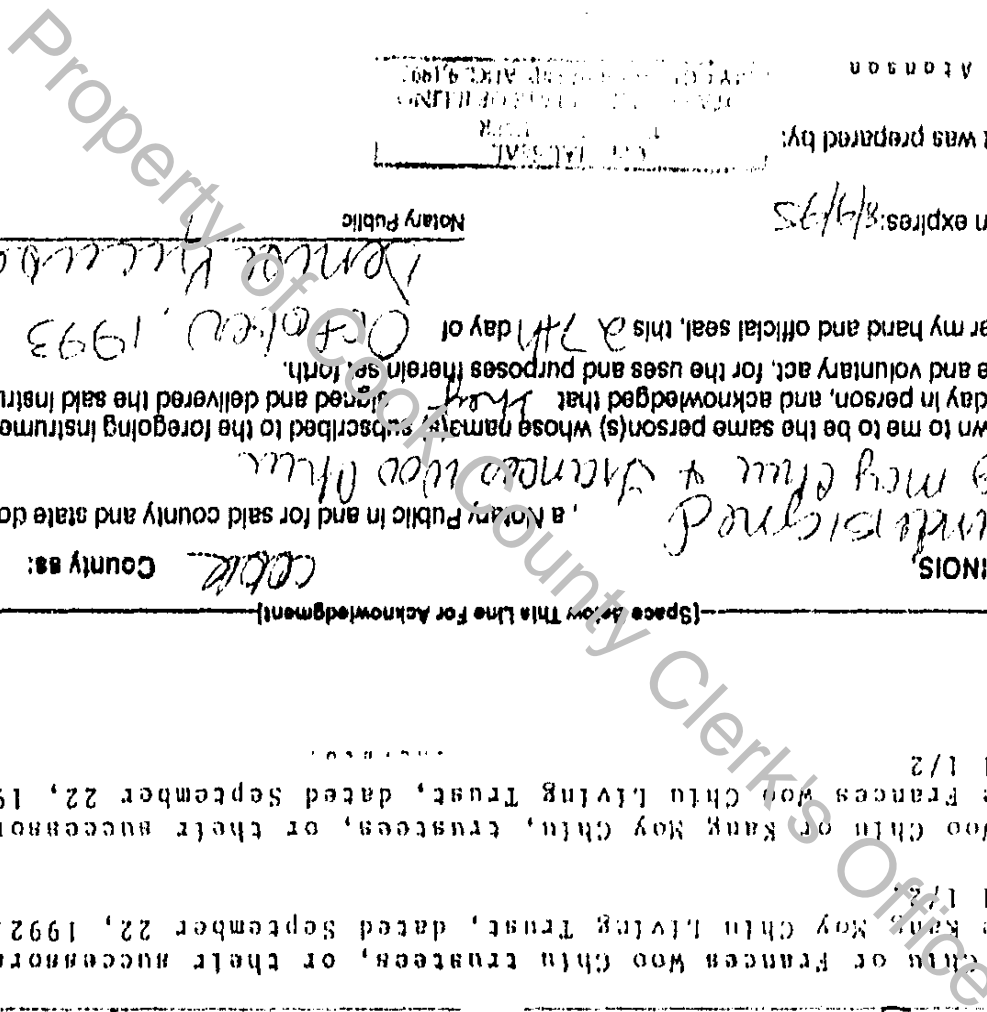 Chiu or Frances Woo Chiu trustees, or their successors
Kang Moy Chiu Living Trust, dated September 22, 1992
1/2.
Woo Chiu or Kang Moy Chiu, trustees, or their successor
Frances Woo Chiu Living Trust, dated September 22, 19
1/2
[Space Below This Line For Acknowledgment]
INOIS, Cook County ss:
undersigned , a Notary Public in and for said county and state do
Moy Chiu & Frances Woo Chiu
wn to me to be the same person(s) whose name(s) subscribed to the foregoing instrume
day in person, and acknowledged that they signed and delivered the said instru
e and voluntary act, for the uses and purposes therein set forth.
er my hand and official seal, this 27th day of October, 1993
n expires: 8/9/95
Notary Public
t was prepared by:
OFFICIAL SEAL
Atonson
Property of Cook County Clerk's Office